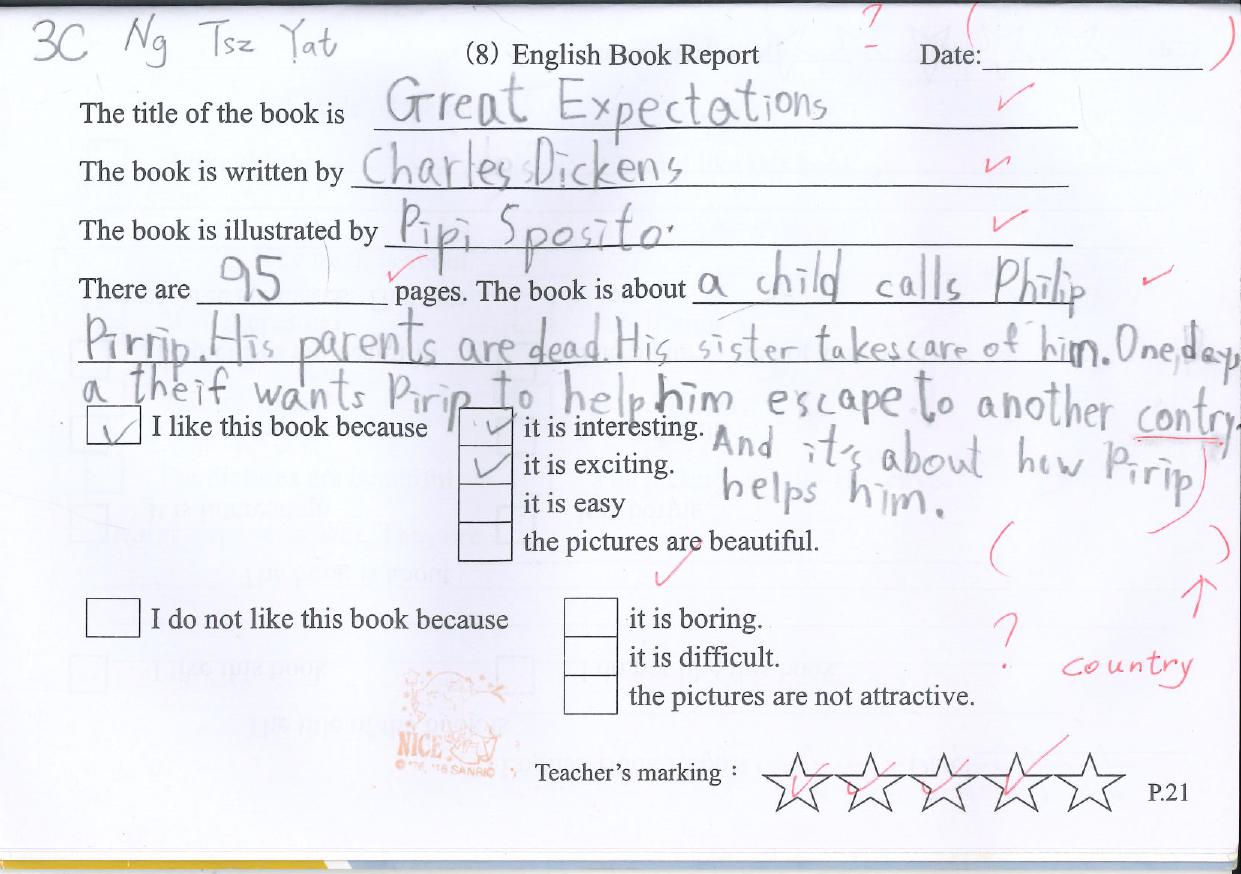 3C Ng Tsz Yat
(8) English Book Report ? Date: ( )
The title of the book is Great Expectations
The book is written by Charles Dickens
The book is illustrated by Pipi Sposito.
There are 95 pages. The book is about a child calls Philip
Pirrip. His parents are dead. His sister takes care of him. One day
a theif wants Piripp to help him escape to another contry.
I like this book because
it is interesting.
it is exciting.
it is easy
the pictures are beautiful.
And it's about how Pirip
helps him.
( )
I do not like this book because
it is boring.
it is difficult.
the pictures are not attractive.
?
country
NICE
© '76, '16 SANRIO
Teacher's marking :
P.21